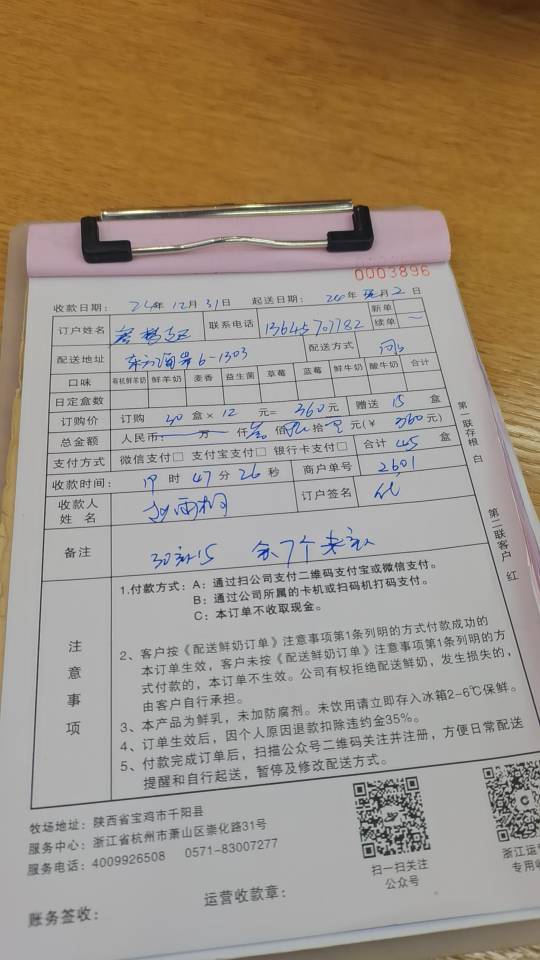 0003896
收款日期： 24年12月31日 起送日期： 年 月2日
订户姓名 联系电话 13645707782 新单 续单
配送地址 6-1303 配送方式
口味 有机鲜羊奶 鲜羊奶 麦香 益生菌 草莓 蓝莓 鲜牛奶 酸牛奶 合计
日定盒数
订购价 订购 30 盒× 12 元= 360元 赠送 15 盒
总金额 人民币： 万 仟叁佰陆拾 元（￥ 360元） 合计 45 盒
支付方式 微信支付□ 支付宝支付□ 银行卡支付□
收款时间： 19 时 47 分 26 秒 商户单号 2601
收款人姓名 赵雨桐 订户签名
备注 30 15 余7个未
第一联存根 白
第二联客户 红
注意事项
1.付款方式：A：通过扫公司支付二维码支付宝或微信支付。
B：通过公司所属的卡机或扫码机打码支付。
C：本订单不收取现金。
2、客户按《配送鲜奶订单》注意事项第1条列明的方式付款成功的
本订单生效，客户未按《配送鲜奶订单》注意事项第1条列明的方
式付款的，本订单不生效。公司有权拒绝配送鲜奶，发生损失的，
由客户自行承担。
3、本产品为鲜乳，未加防腐剂。未饮用请立即存入冰箱2-6℃保鲜。
4、订单生效后，因个人原因退款扣除违约金35%。
5、付款完成订单后，扫描公众号二维码关注并注册，方便日常配送
提醒和自行起送，暂停及修改配送方式。
牧场地址：陕西省宝鸡市千阳县
服务中心：浙江省杭州市萧山区崇化路31号
服务电话：4009926508 0571-83007277
扫一扫关注
公众号
浙江运
专用收
账务签收： 运营收款章：